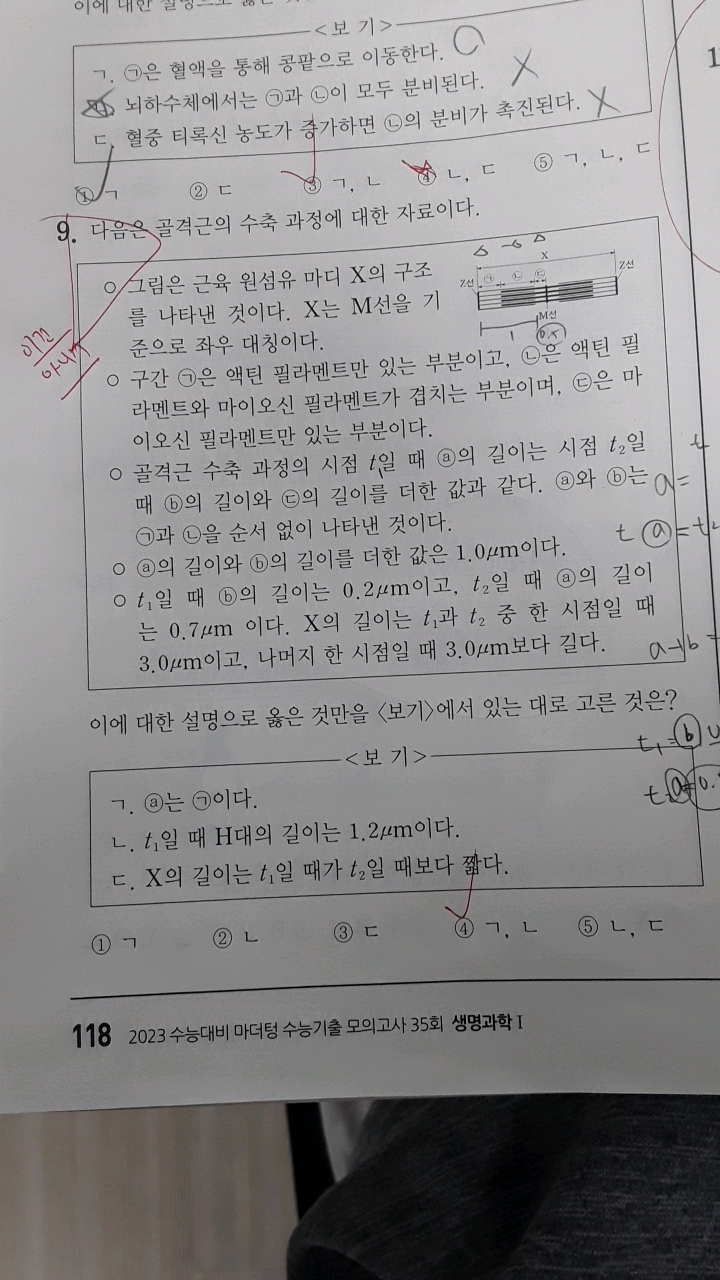 이에 대한 설명으로 옳은
<보 기>
ㄱ. ㉠은 혈액을 통해 콩팥으로 이동한다. O
ㄴ. 뇌하수체에서는 ㉠과 ㉡이 모두 분비된다. X
ㄷ. 혈중 티록신 농도가 증가하면 ㉡의 분비가 촉진된다. X
① ㄱ ② ㄷ ③ ㄱ, ㄴ ④ ㄴ, ㄷ ⑤ ㄱ, ㄴ, ㄷ
9. 다음은 골격근의 수축 과정에 대한 자료이다.
○ 그림은 근육 원섬유 마디 X의 구조
를 나타낸 것이다. X는 M선을 기
준으로 좌우 대칭이다.
X
Z선 ㉠ ㉡ ㉢ Z선
M선
1
○ 구간 ㉠은 액틴 필라멘트만 있는 부분이고, ㉡은 액틴 필
라멘트와 마이오신 필라멘트가 겹치는 부분이며, ㉢은 마
이오신 필라멘트만 있는 부분이다.
○ 골격근 수축 과정의 시점 t₁일 때 ⓐ의 길이는 시점 t₂일
때 ⓑ의 길이와 ㉢의 길이를 더한 값과 같다. ⓐ와 ⓑ는
㉠과 ㉡을 순서 없이 나타낸 것이다.
○ ⓐ의 길이와 ⓑ의 길이를 더한 값은 1.0μm이다.
○ t₁일 때 ⓑ의 길이는 0.2μm이고, t₂일 때 ⓐ의 길이
는 0.7μm 이다. X의 길이는 t₁과 t₂ 중 한 시점일 때
3.0μm이고, 나머지 한 시점일 때 3.0μm보다 길다.
a=
a+b =
이에 대한 설명으로 옳은 것만을 <보기>에서 있는 대로 고른 것은?
<보 기>
ㄱ. ⓐ는 ㉠이다.
ㄴ. t₁일 때 H대의 길이는 1.2μm이다.
ㄷ. X의 길이는 t₁일 때가 t₂일 때보다 짧다.
① ㄱ ② ㄴ ③ ㄷ ④ ㄱ, ㄴ ⑤ ㄴ, ㄷ
118 2023 수능대비 마더텅 수능기출 모의고사 35회 생명과학 I